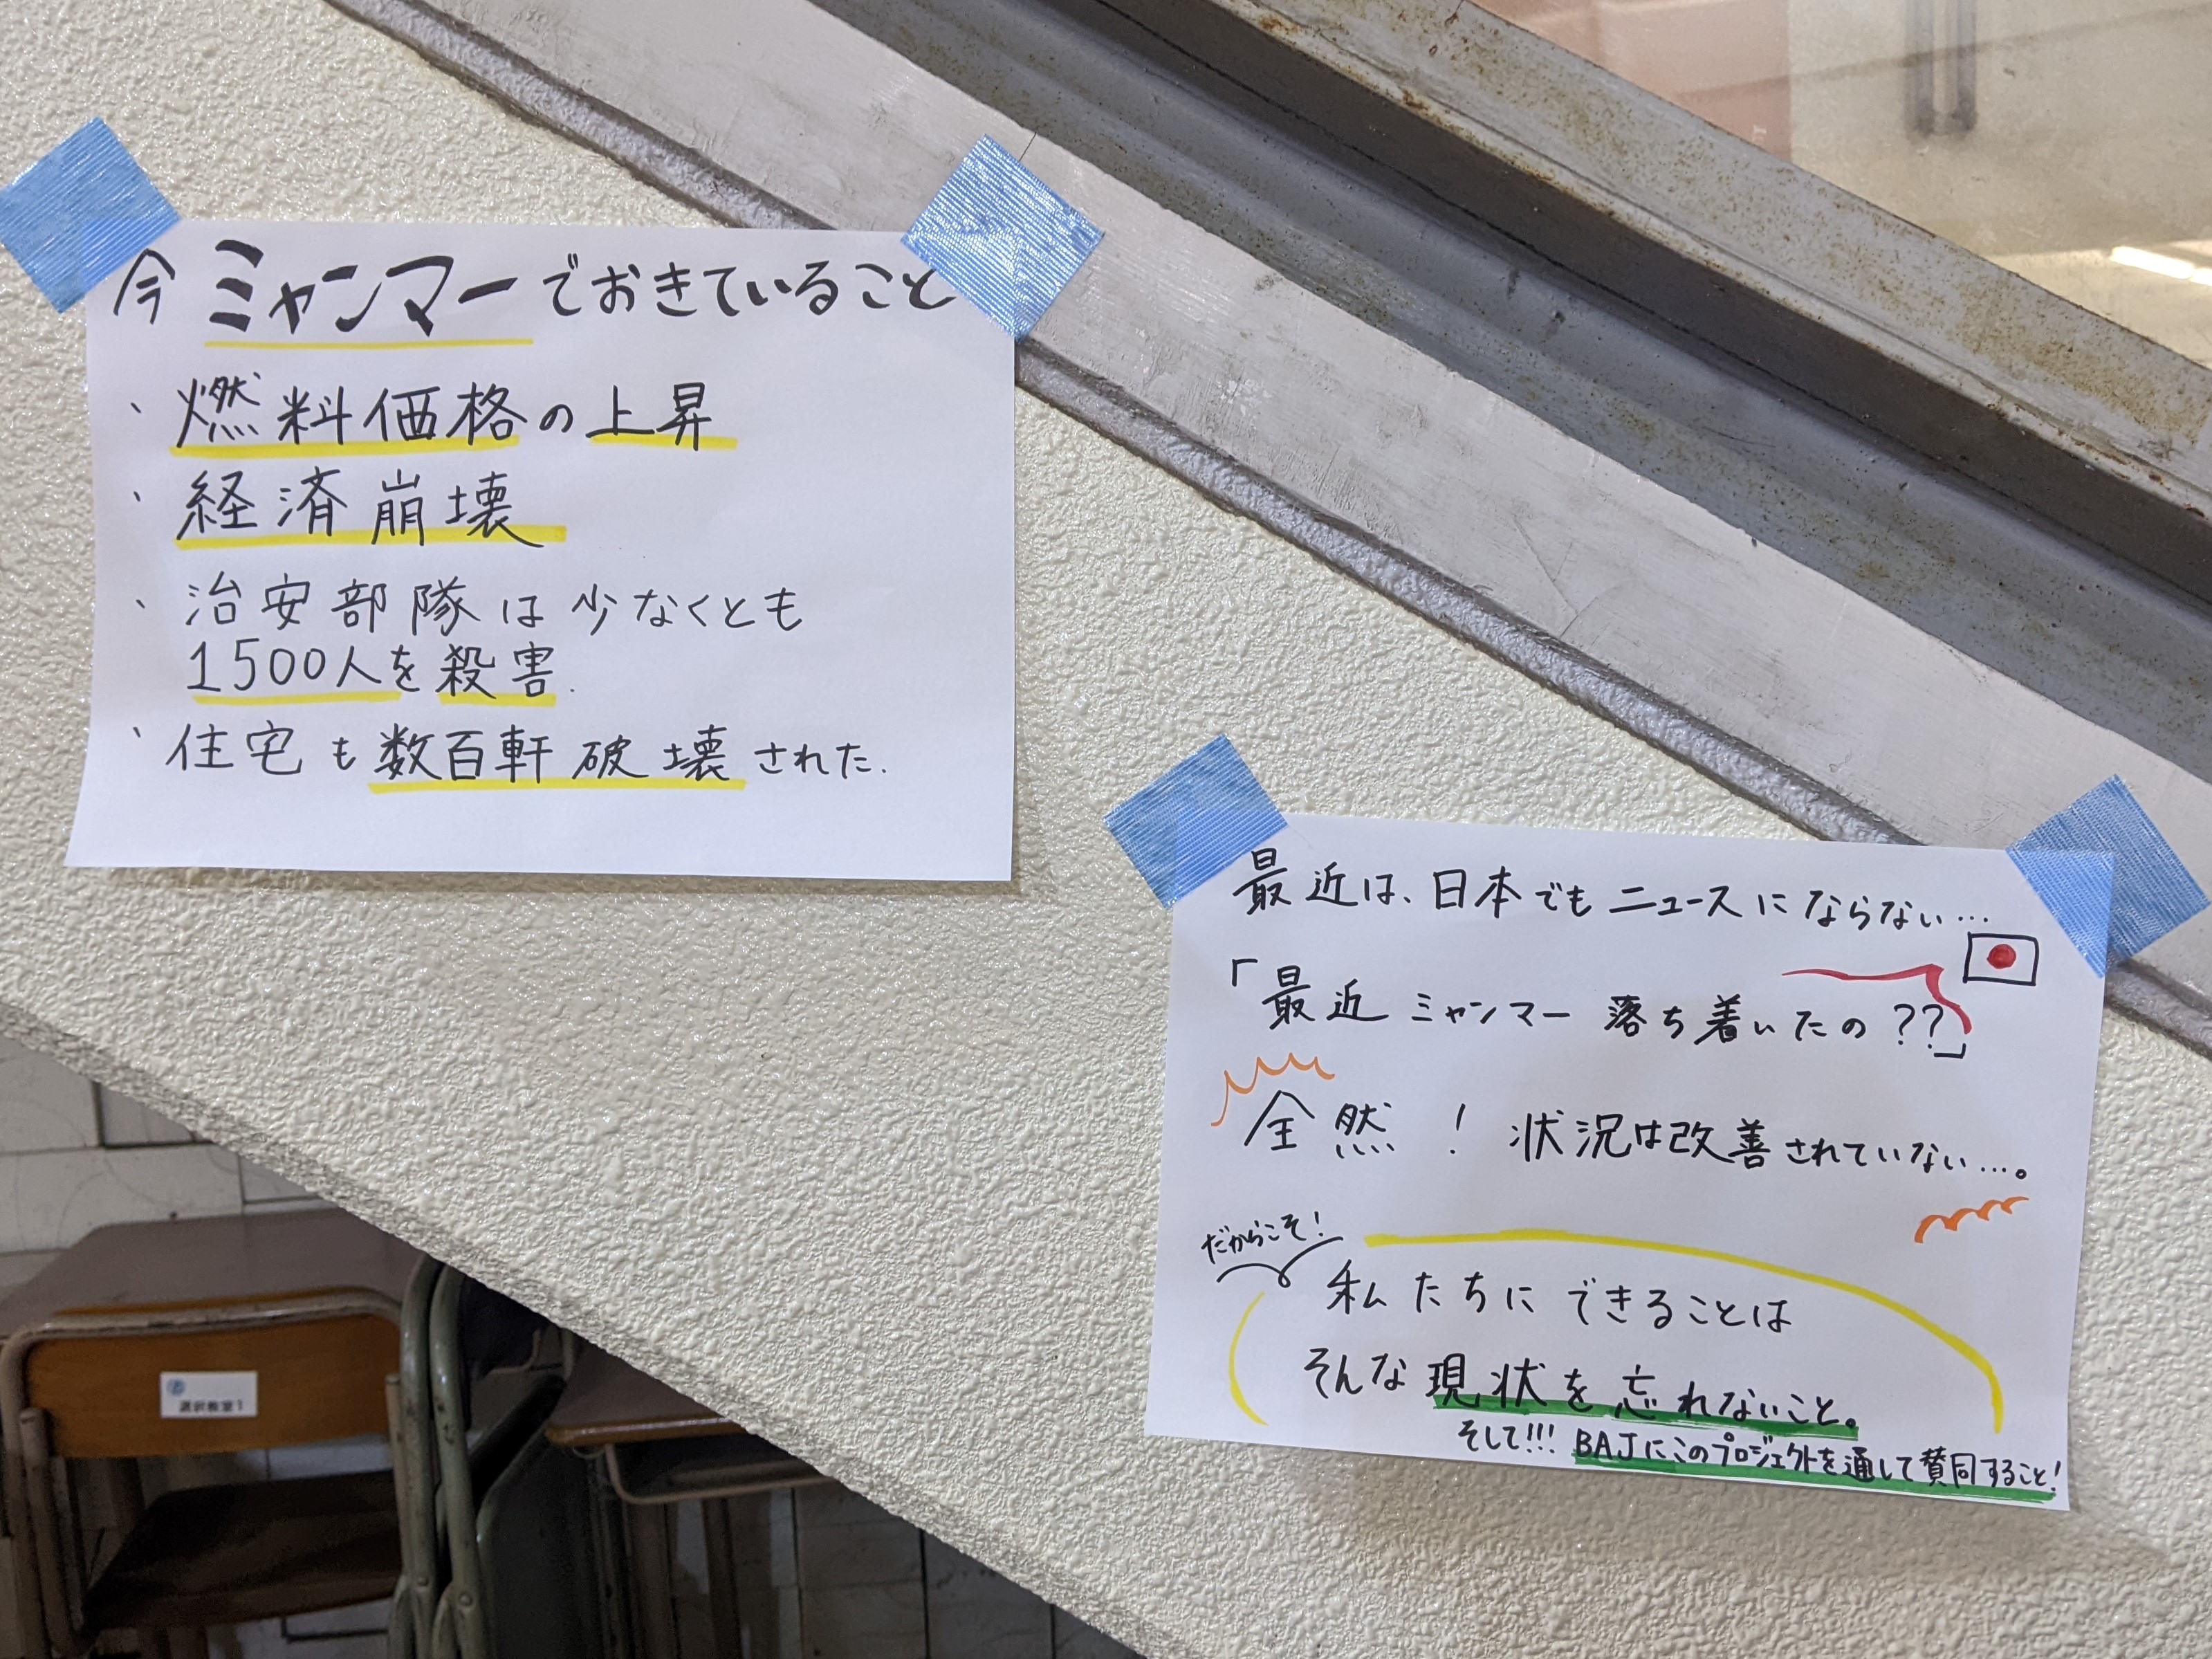 今 ミャンマーでおきていること
・燃料価格の上昇
・経済崩壊
・治安部隊は少なくとも
1500人を殺害.
・住宅も数百軒破壊された.
最近は、日本でもニュースにならない…
「最近 ミャンマー 落ち着いたの??」
全然! 状況は改善されていない…。
だからこそ!
私たちにできることは
そんな現状を忘れないこと。
そして!!! BAJにこのプロジェクトを通して賛同すること!
選択教室1